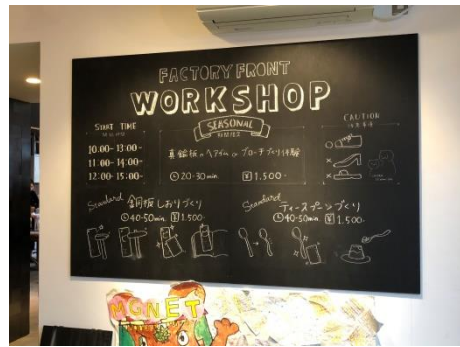 FACTORY FRONT
WORKSHOP
START TIME
10:00- 13:00-
11:00- 14:00-
12:00- 15:00-
SEASONAL
期間限定
真鍮板のヘアゴム or ブローチづくり体験
20-30min. ¥1,500-
CAUTION
注意事項
Standard 銅板しおりづくり
40-50min. ¥1,500-
Standard ティースプーンづくり
40-50min. ¥1,500-
MGNET